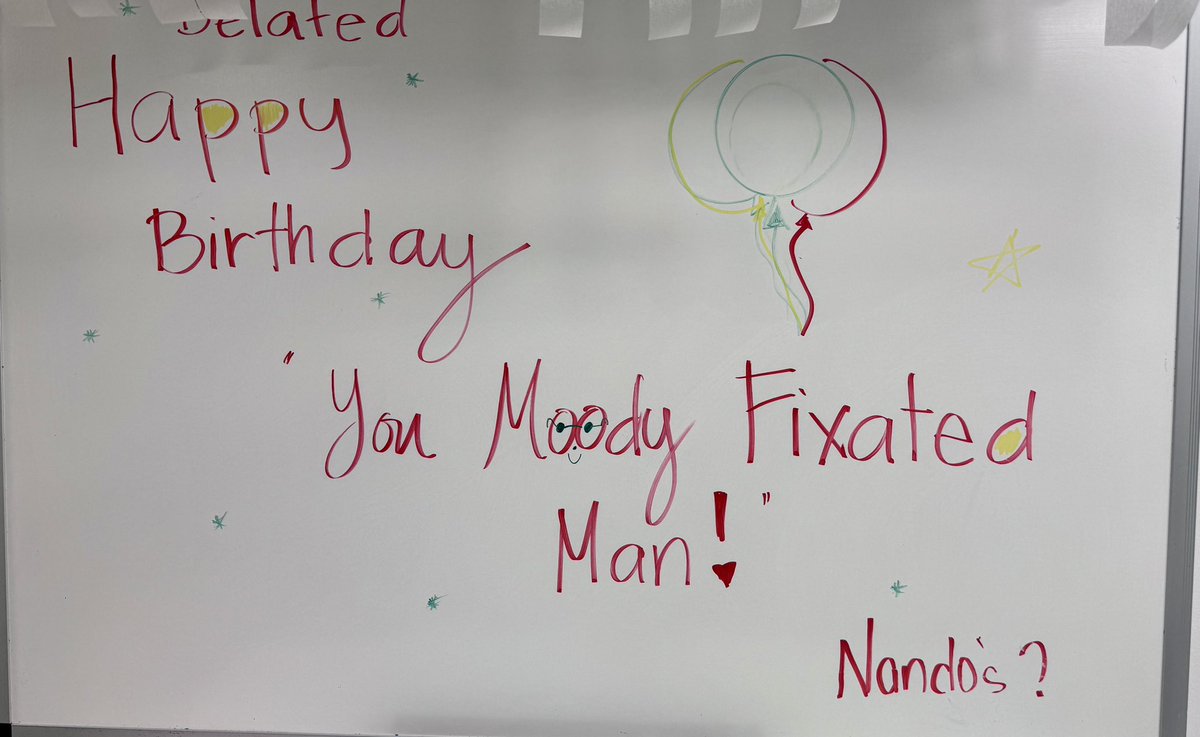 Belated
Happy
Birthday
"You Moody Fixated
Man!"
Nando's?